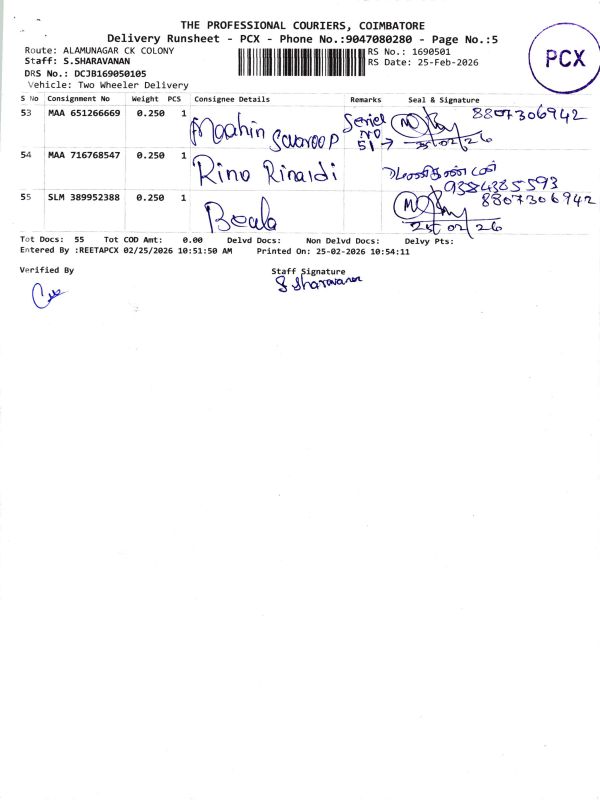 THE PROFESSIONAL COURIERS, COIMBATORE
Delivery Runsheet - PCX - Phone No.:9047080280 - Page No.:5
PCX
Route: ALAMUNAGAR CK COLONY
RS No.: 1690501
Staff: S.SHARAVANAN
RS Date: 25-Feb-2026
DRS No.: DCJB169050105
Vehicle: Two Wheeler Delivery
S No Consignment No Weight PCS Consignee Details Remarks Seal & Signature
53 MAA 651266669 0.250 1 Maahin Swaroop Seriel No 51 → 8807306942
25/02/26
54 MAA 716768547 0.250 1 Rino Rinaldi
9384385593
55 SLM 389952388 0.250 1 8807306942
25/02/26
Tot Docs: 55 Tot COD Amt: 0.00 Delvd Docs: Non Delvd Docs: Delvy Pts:
Entered By :REETAPCX 02/25/2026 10:51:50 AM Printed On: 25-02-2026 10:54:11
Verified By
Staff Signature
S Sharavanan